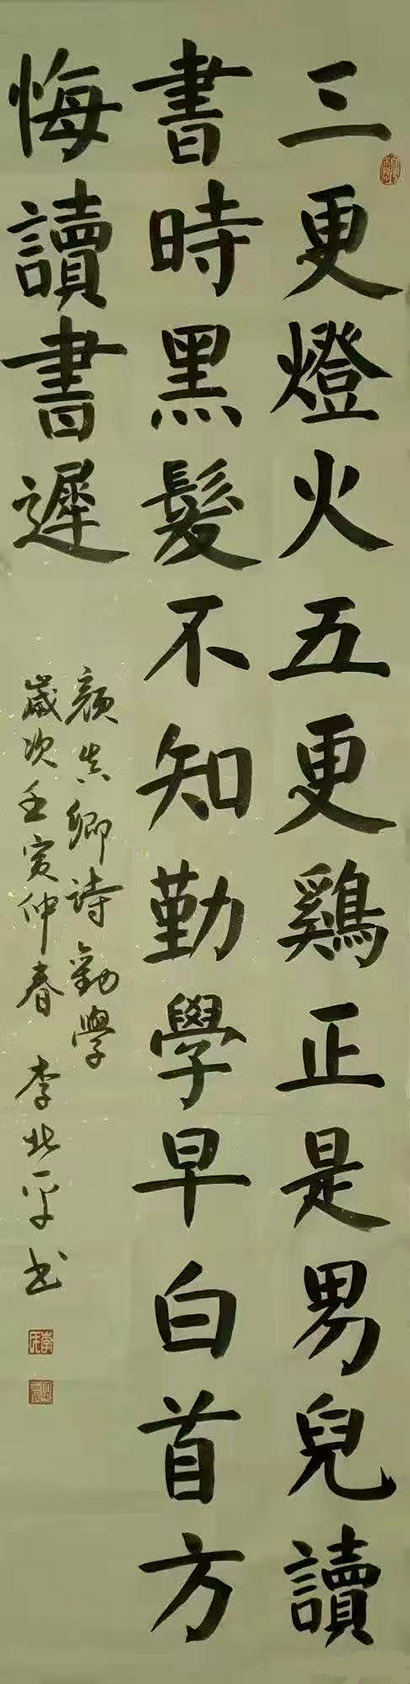 三更燈火五更鷄正是男兒讀
書時黑髮不知勤學早白首方
悔讀書遲
顔真卿詩勸學
歲次壬寅仲春 李北平书